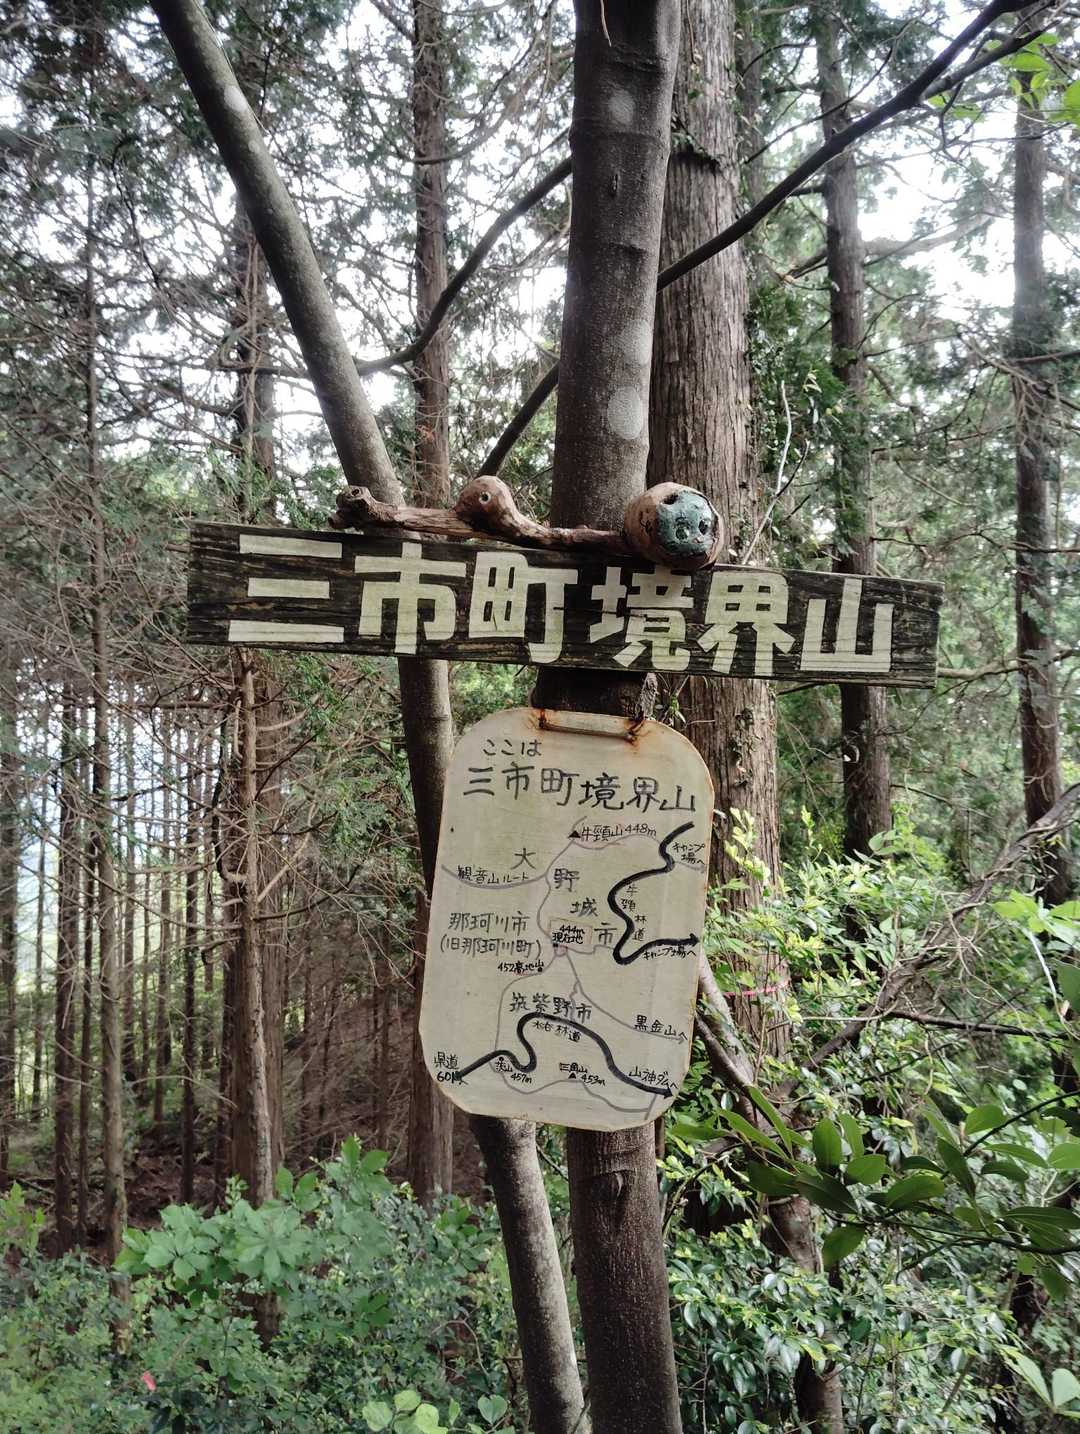 三市町境界山
ここは
三市町境界山
牛頸山448m
キャンプ場へ
大野城市
観音山ルート
牛頸林道
那珂川市
(旧那珂川町)
444m
現在地
キャンプ場へ
452高地山
筑紫野市
林道
黒金山へ
県道
60
457m
三角山
459m
山神ダムへ